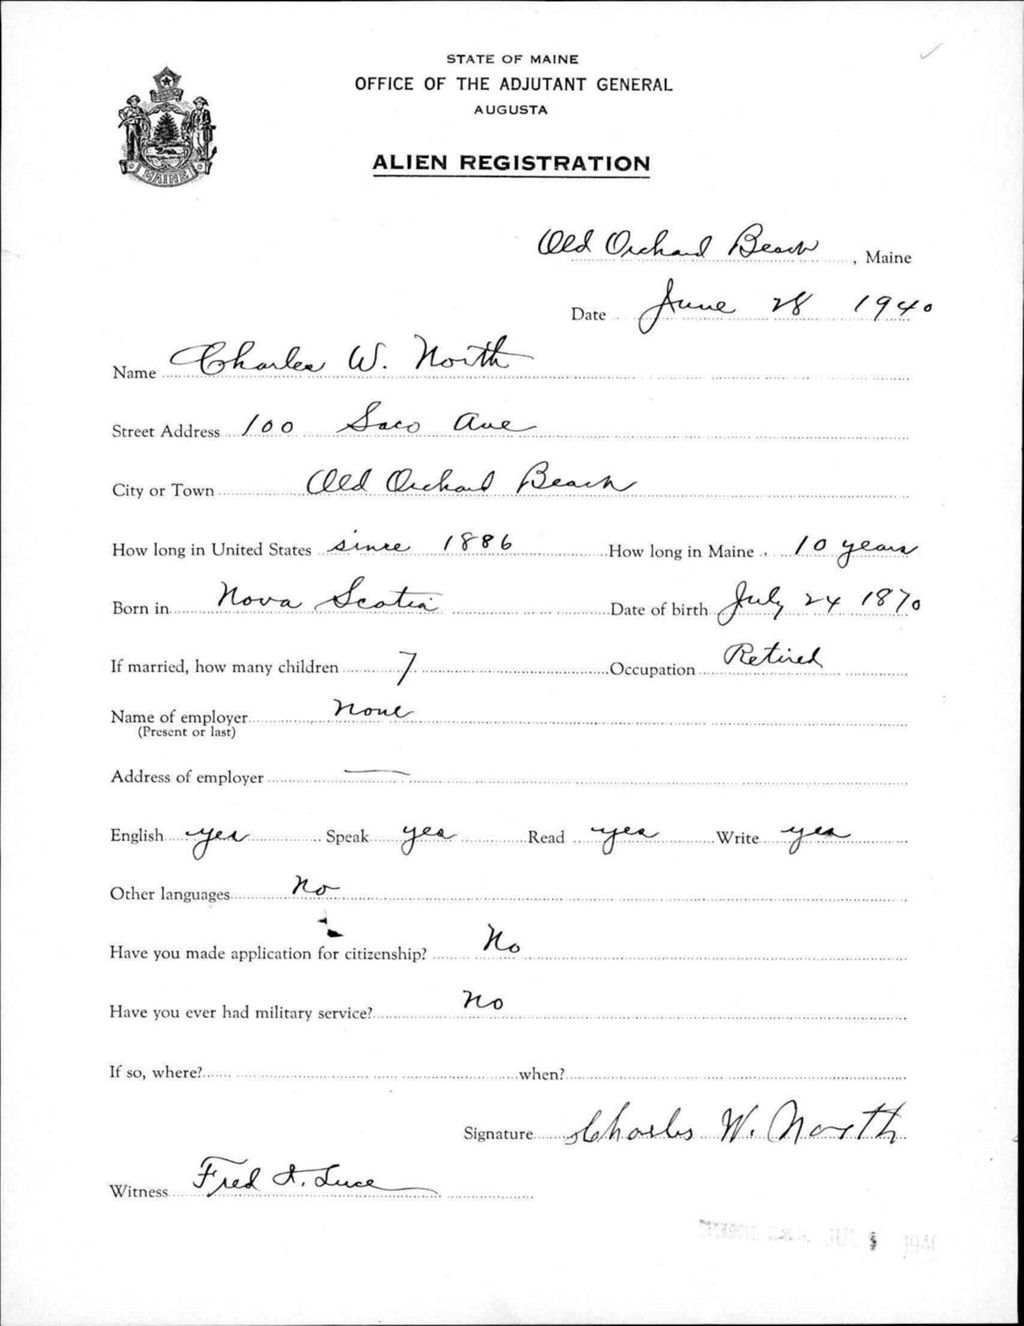 STATE OF MAINE
OFFICE OF THE ADJUTANT GENERAL
AUGUSTA
ALIEN REGISTRATION
MAINE
Old Orchard Beach, Maine
Date June 28 1940
Name Charles W. North
Street Address 100 Saco Ave
City or Town Old Orchard Beach
How long in United States since 1886 How long in Maine 10 years
Born in Nova Scotia Date of birth July 24 1870
If married, how many children 7 Occupation Retired
Name of employer None
(Present or last)
Address of employer —
English yes Speak yes Read yes Write yes
Other languages No
Have you made application for citizenship? No
Have you ever had military service? No
If so, where? when?
Signature Charles W. North
Witness Fred I. Luce